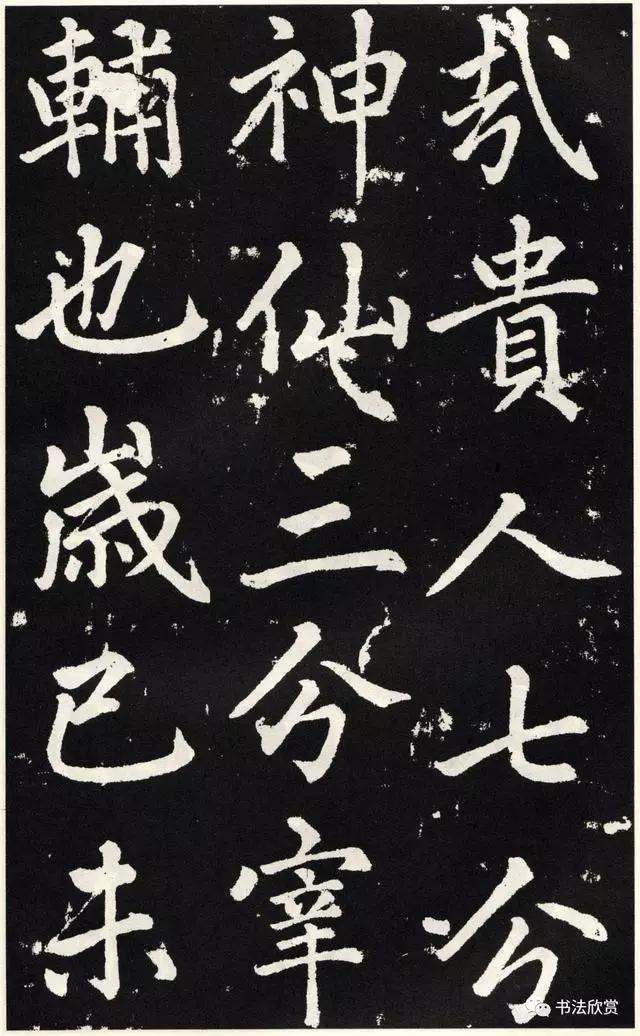 㢤貴人七分
神仙三分宰
輔也歲己未
书法欣赏